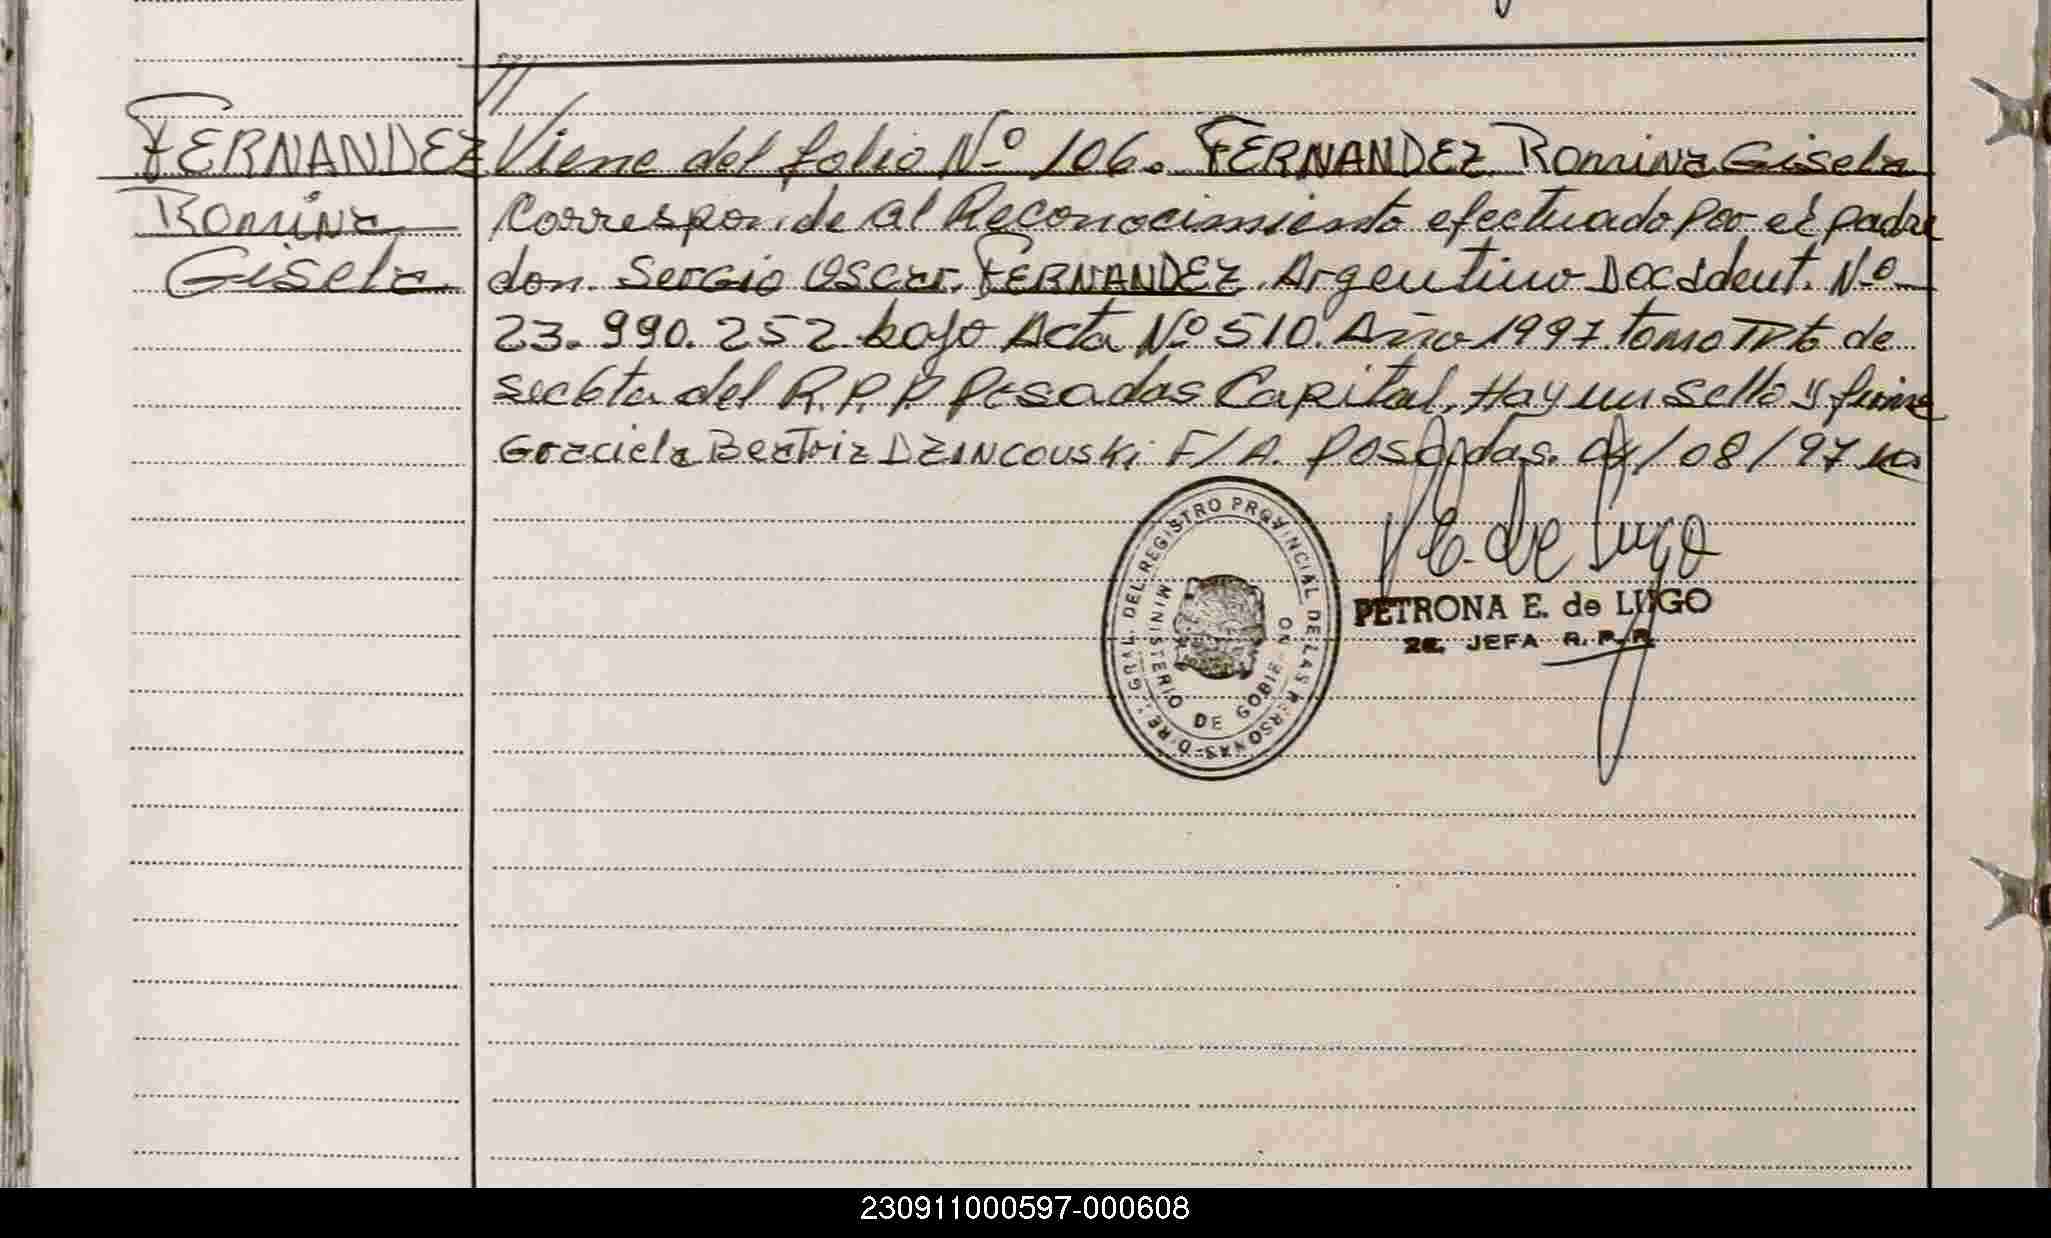 FERNANDEZ
Romina
Gisela
// Viene del folio Nº 106. FERNANDEZ Romina Gisela
Corresponde al Reconocimiento efectuado por el padre
don Sergio Oscar FERNANDEZ Argentino Doc Ident. Nº
23.990.252 bajo Acta Nº 510. Año 1997 tomo de
del R.P.P Posadas Capital. Hay un sello y firma
Graciela Beatriz DZINCOUSKi F/A. Posadas. 04/08/97
P E. de Lugo
PETRONA E. de LUGO
2a. JEFA R. P. P.
DIRE. GRAL. DEL REGISTRO PROVINCIAL DE LAS PERSONAS
MINISTERIO DE GOBIERNO
230911000597-000608